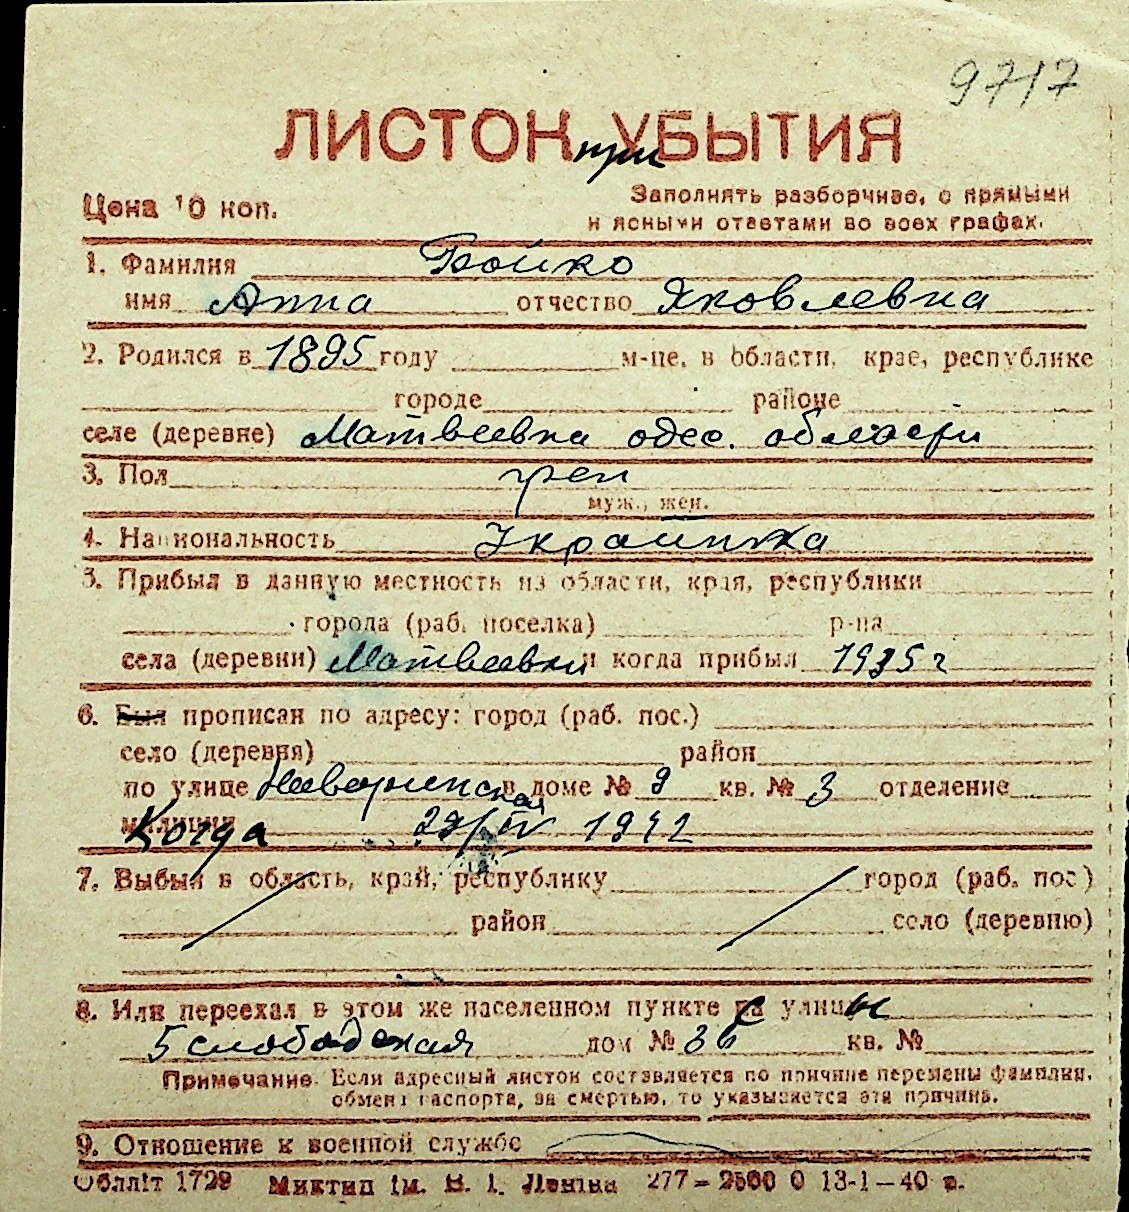 9717
ЛИСТОК при УБЫТИЯ
Цена 10 коп.
Заполнять разборчиво, с прямыми
и ясными ответами во всех графах.
1. Фамилия Бойко
имя Анна отчество Яковлевна
2. Родился в 1895 году м-це, в области, крае, республике
городе районе
селе (деревне) Матвеевка одес. области
3. Пол жен
муж., жен.
4. Национальность Украинка
5. Прибыл в данную местность из области, края, республики
города (раб. поселка) р-на
села (деревни) Матвеевки и когда прибыл 1935 г
6. Был прописан по адресу: город (раб. пос.)
село (деревня) район
по улице в доме № 9 кв. № 3 отделение
милиции Когда 29/IV 1942
7. Выбыл в область, край, республику город (раб. пос.)
район село (деревню)
8. Или переехал в этом же населенном пункте с улицы
5 слободская дом № 36 кв. №
Примечание. Если адресный листок составляется по причине перемены фамилии,
обмена паспорта, за смертью, то указывается эта причина.
9. Отношение к военной службе
Обліт 1729 Миктип ім. В. І. Леніна 277—2500 0 13-1—40 р.